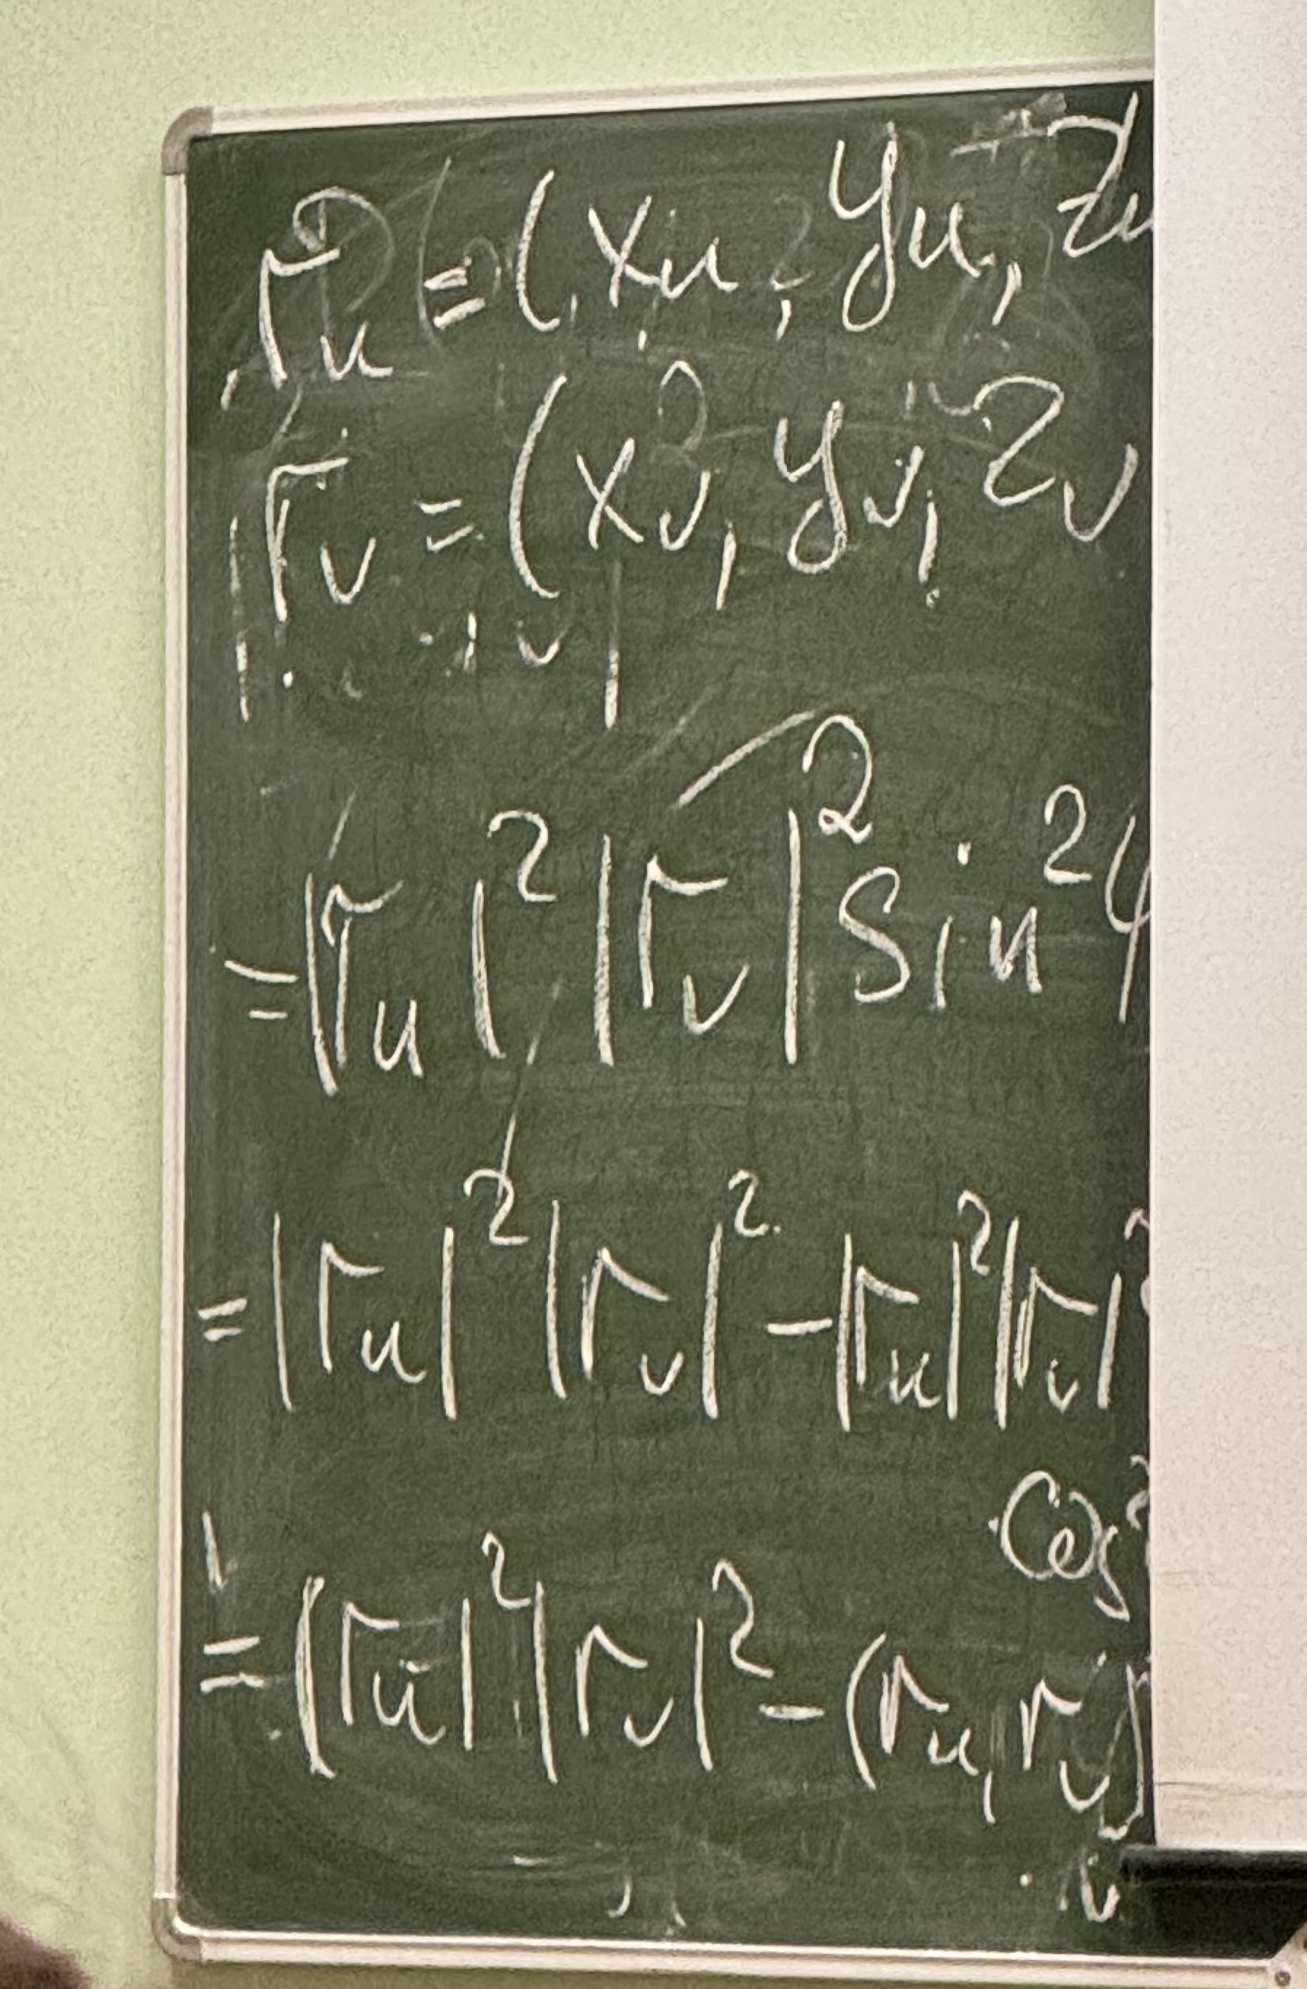 r_u = (x_u, y_u, z_u
r_v = (x_v, y_v, z_v
= |r_u|² |r_v|² sin² φ
= |r_u|² |r_v|² - |r_u|² |r_v|²
cos²
= |r_u|² |r_v|² - (r_u, r_v)